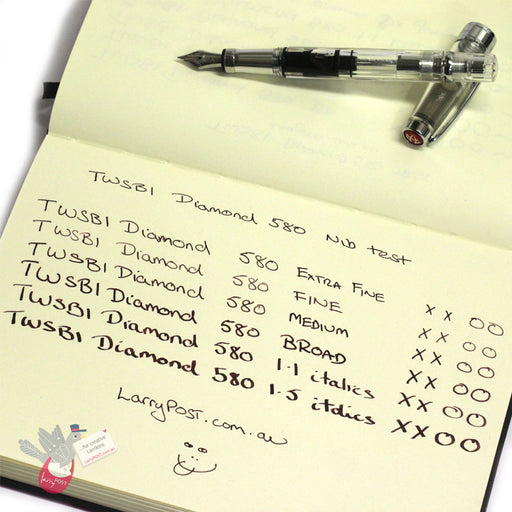 TWSBI Diamond 580 Nib test
TWSBI Diamond 580 EXTRA FINE XX OO
TWSBI Diamond 580 FINE XX OO
TWSBI Diamond 580 MEDIUM XX OO
TWSBI Diamond 580 BROAD XX OO
TWSBI Diamond 580 1.1 italics XX OO
TWSBI Diamond 580 1.5 italics XXOO
LarryPost.com.au
...for creative
Larrikins
LarryPOST.com.au
larryPOST